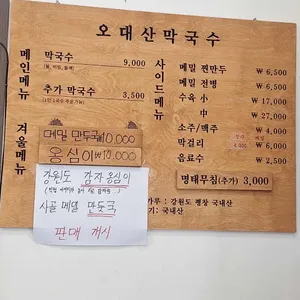 오대산막국수
메인메뉴
막국수 9,000
(물, 비빔, 들깨)
추가 막국수 3,500
사이드메뉴
메밀 찐만두 ₩ 6,500
메밀 전병 ₩ 6,500
수육 小 ₩ 17,000
中 ₩ 27,000
소주/맥주 ₩ 4,000
막걸리
음료수 ₩ 2,500
명태무침(추가) 3,000
겨울메뉴
메밀 만두국 ₩10,000
옹심이 ₩10,000
강원도 감자 옹심이
사골 메밀 만둣국
판매 개시
가루 : 강원도 평창 국내산
기 : 국내산